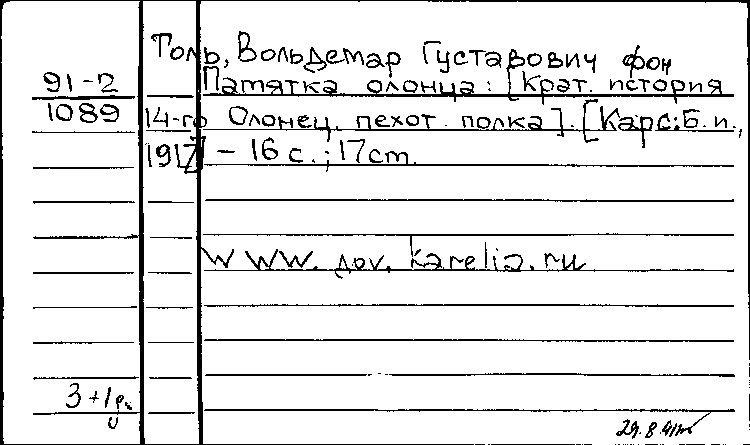 Толь, Вольдемар Густавович фон
91-2 Памятка олонца: [Крат. история
1089 14-го Олонец. пехот. полка]. [Карс: Б. и.,
1917] – 16 с. ; 17 cm.
www. gov. karelia. ru
3+1
29.8.91